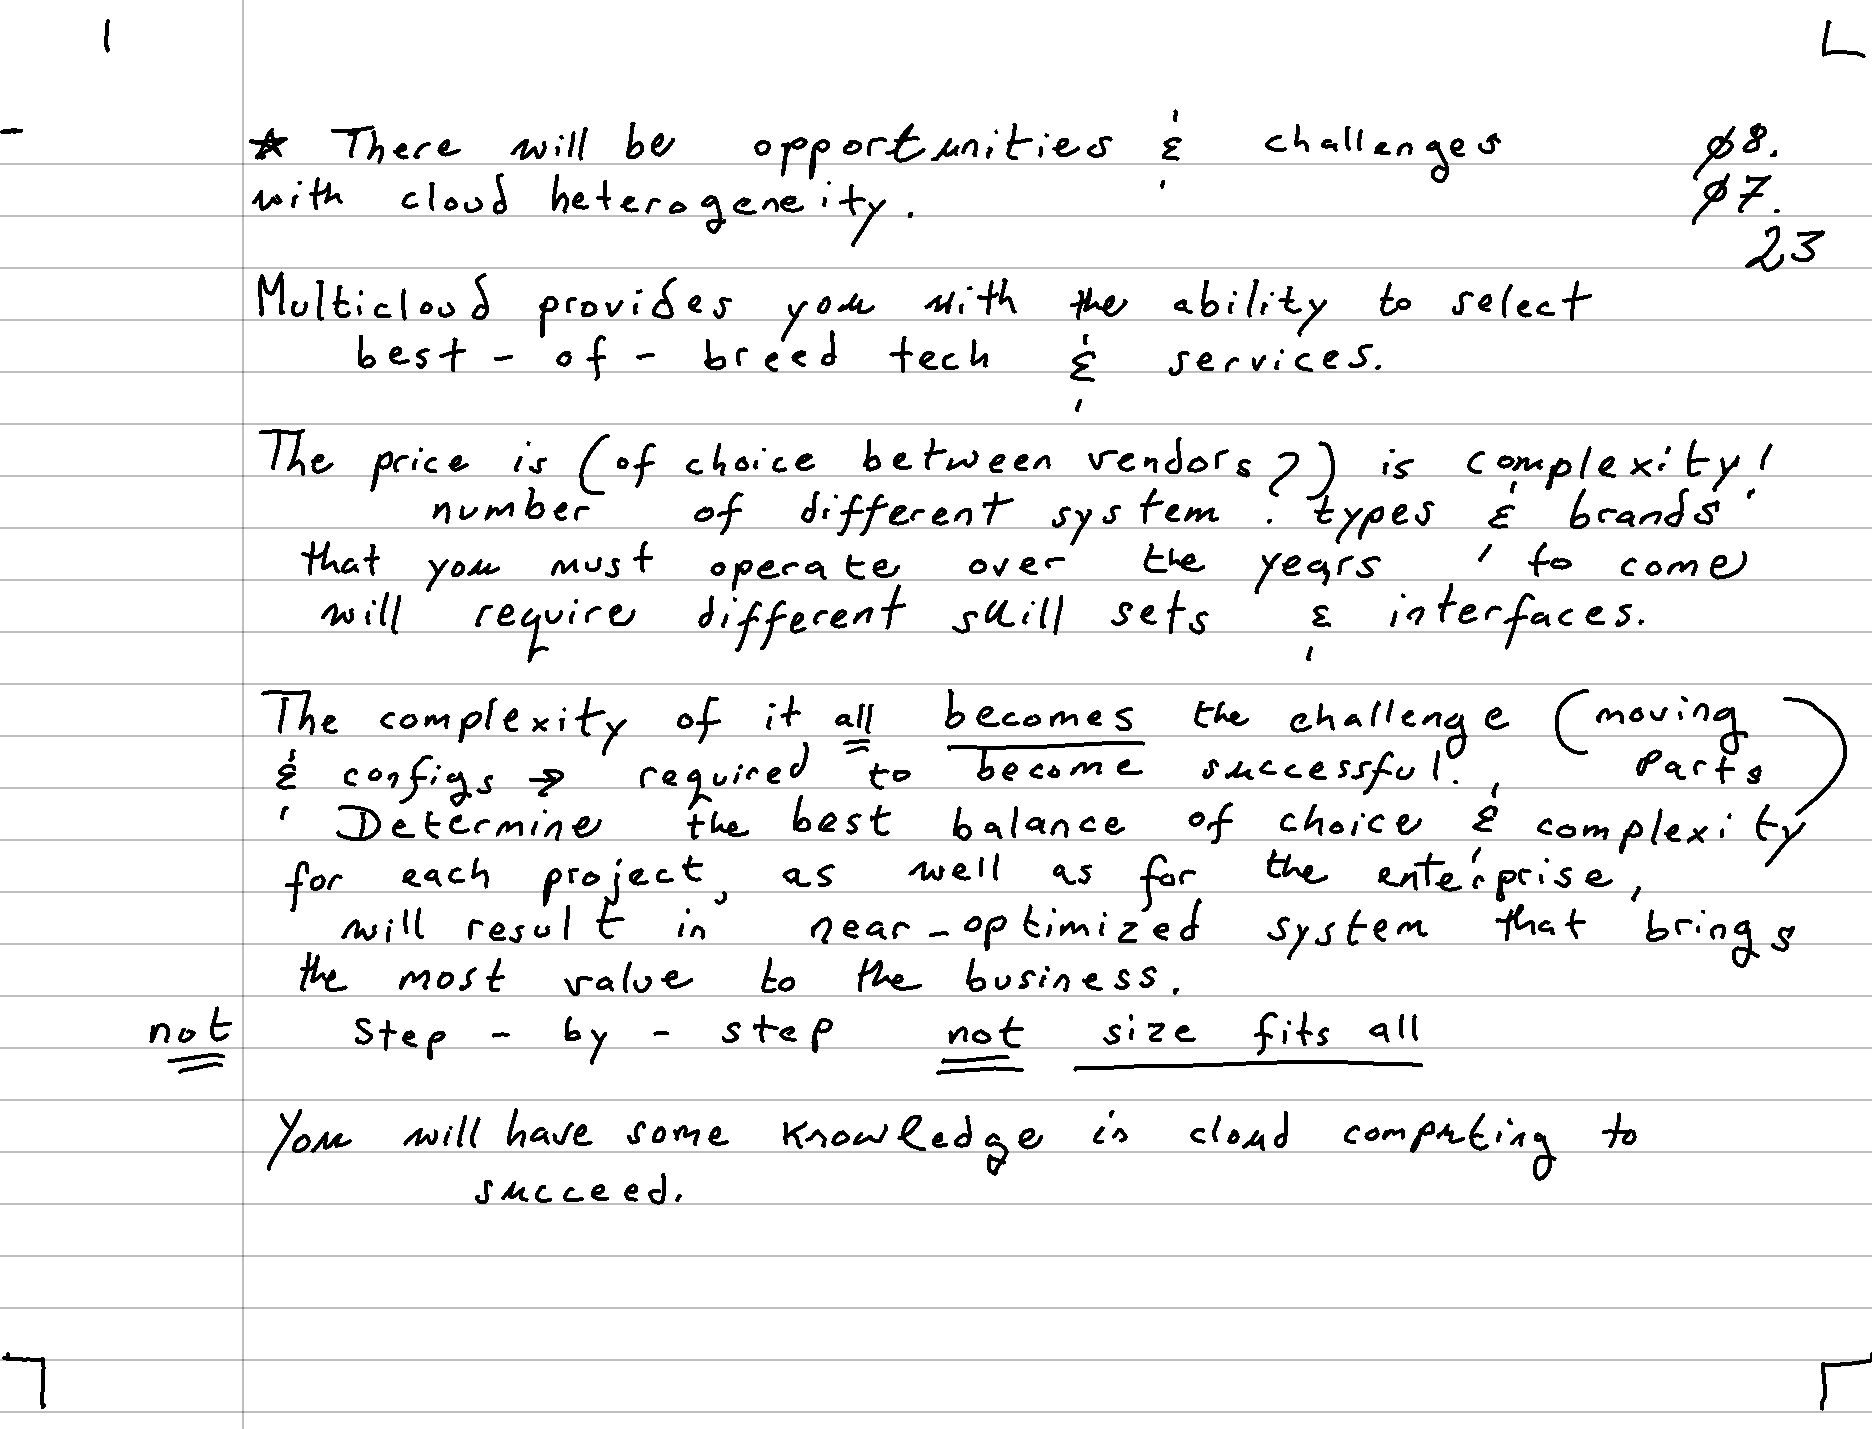 ★ There will be opportunities & challenges
with cloud heterogeneity.
ø8.
ø7.
23
Multicloud provides you with the ability to select
best - of - breed tech & services.
The price is (of choice between vendors?) is complexity!
number of different system. types & brands
that you must operate over the years to come
will require different skill sets & interfaces.
The complexity of it all becomes the challenge (moving
parts)
& configs → required to become successful.
Determine the best balance of choice & complexity
for each project, as well as for the enterprise,
will result in near-optimized system that brings
the most value to the business.
not Step - by - step not size fits all
You will have some knowledge in cloud computing to
succeed.